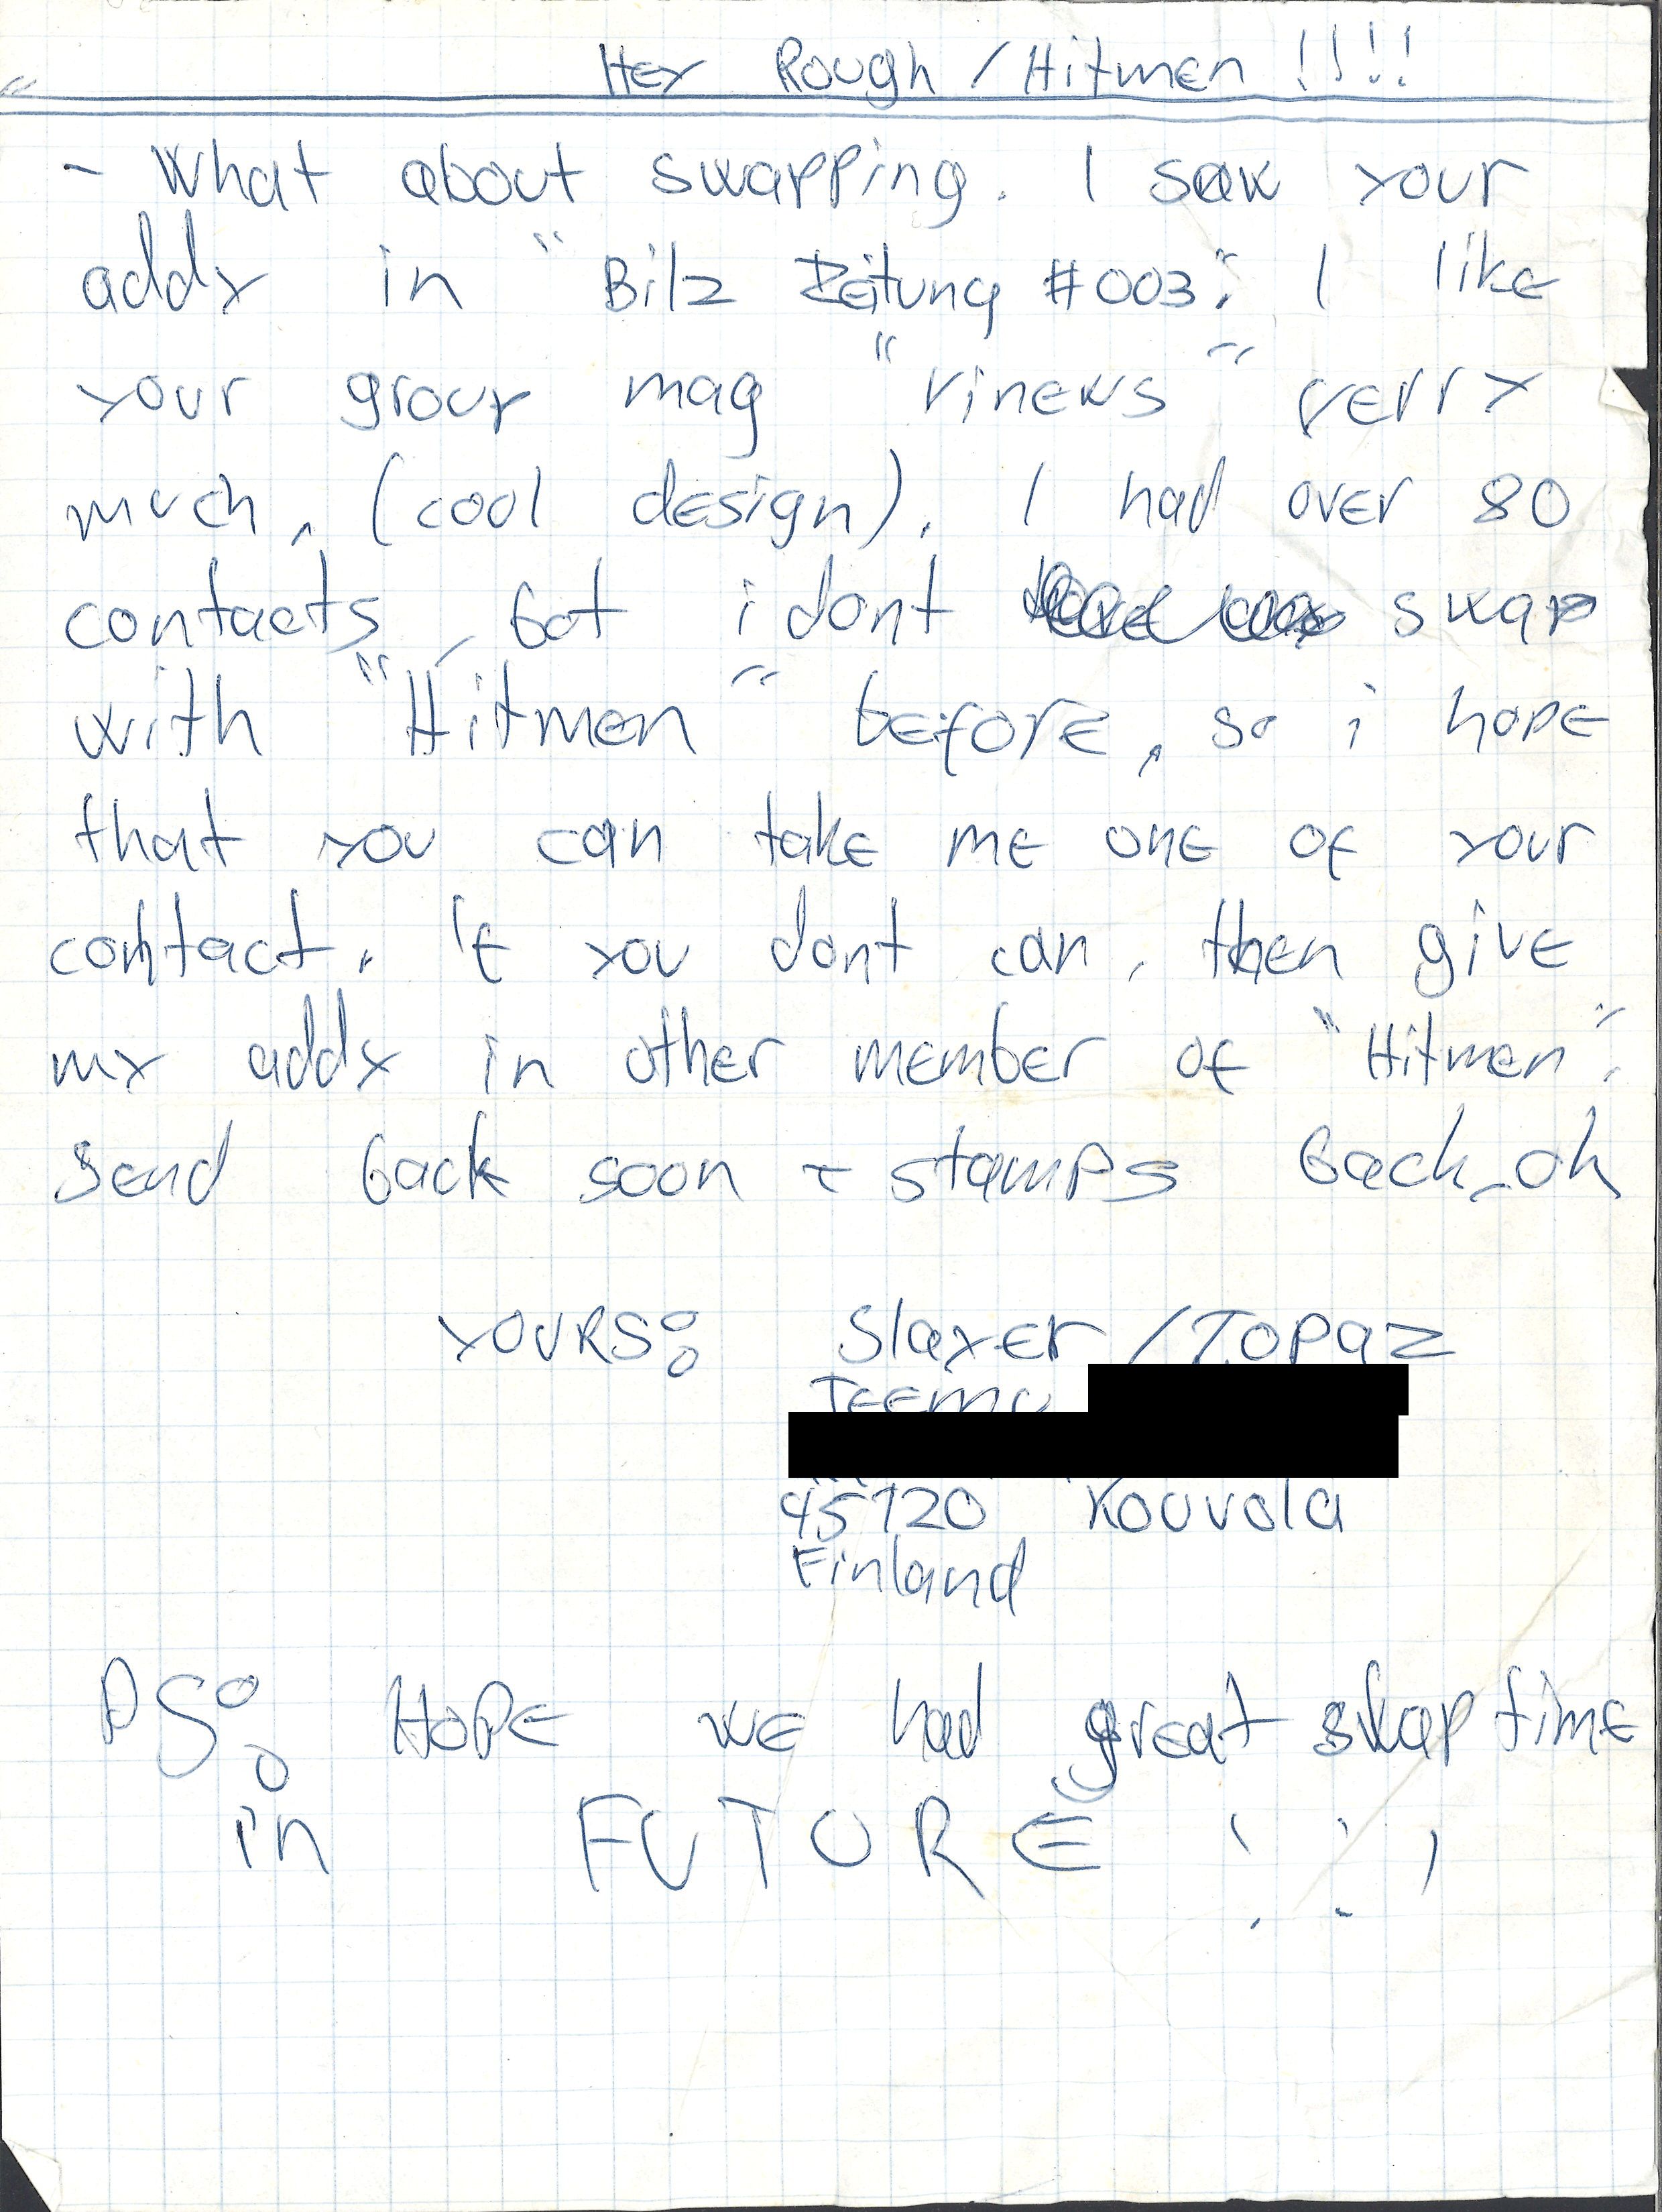 Hey Rough / Hitmen !!!!
- What about swapping. I saw your
addy in "Bilz Zeitung #003". I like
your group mag "vinews" verry
much, (cool design). I had over 80
contacts, bot i dont swap
with "Hitmen" before, so i hope
that you can take me one of your
contact. if you dont can, then give
my addy in other member of "Hitmen".
Send back soon + stamps back, ok
YOURS: Slayer / Topaz
Teemu
45120 Kouvola
Finland
PS: HOPE WE had great swap time
in FUTURE !!!